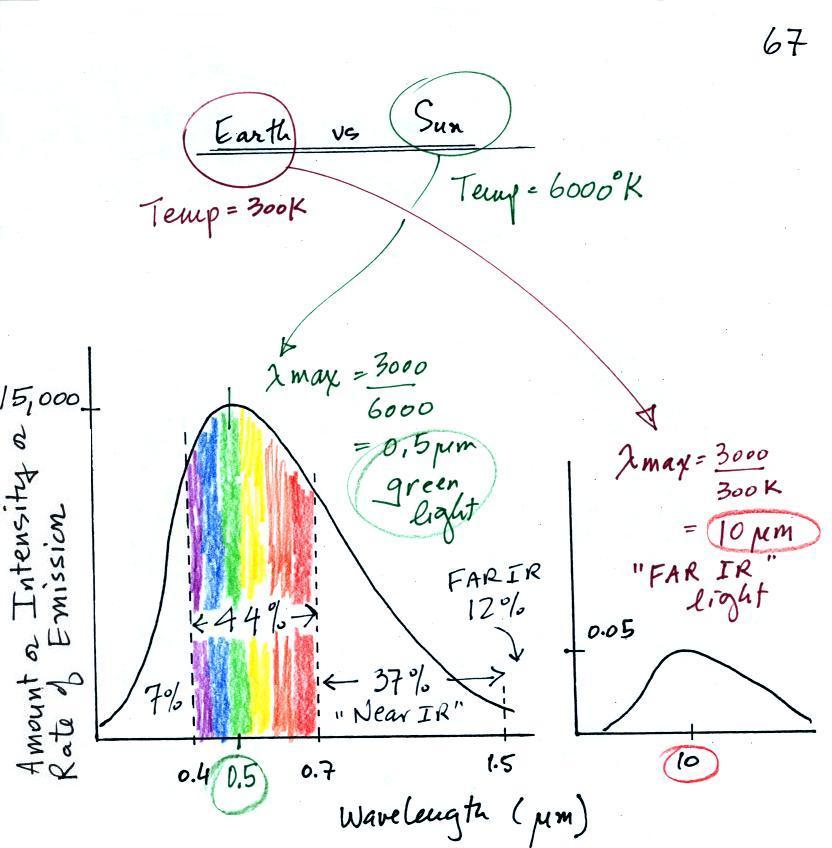 67
Earth vs Sun
Temp = 300K
Temp = 6000°K
λmax = 3000
6000
= 0.5 μm
green
light
15,000
Amount or Intensity or
Rate of Emission
λmax = 3000
300K
= 10 μm
"FAR IR"
light
FAR IR
12%
0.05
← 44% →
7%
← 37% →
"Near IR"
0.4
0.5
0.7
1.5
10
Wavelength (μm)